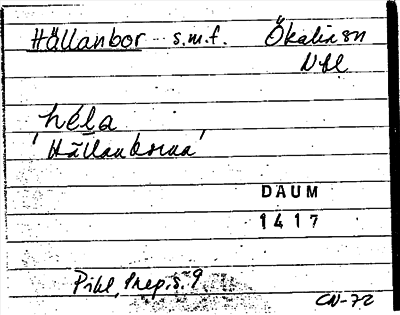 Hällanbor s.m.f. Ökalix sn
Nbl
hela
'Hällanborna'
DAUM
1417
Pihl, Prep. s. 9
CN-72